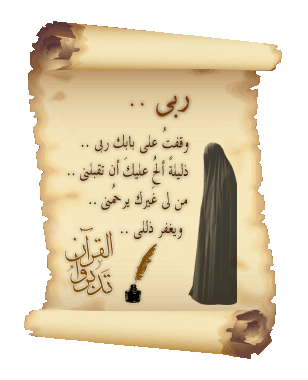 ربى ..
وقفتُ على بابك ربى ..
ذليلةً ألحُ عليكَ أن تقبلنى ..
من لى غَيرك يرحمُنى ..
ويغفر ذللى ..
القرآن
تدبروا